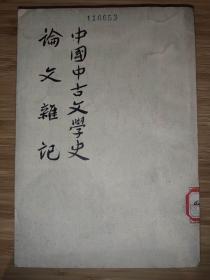 116653
中國中古文學史
論文雜記